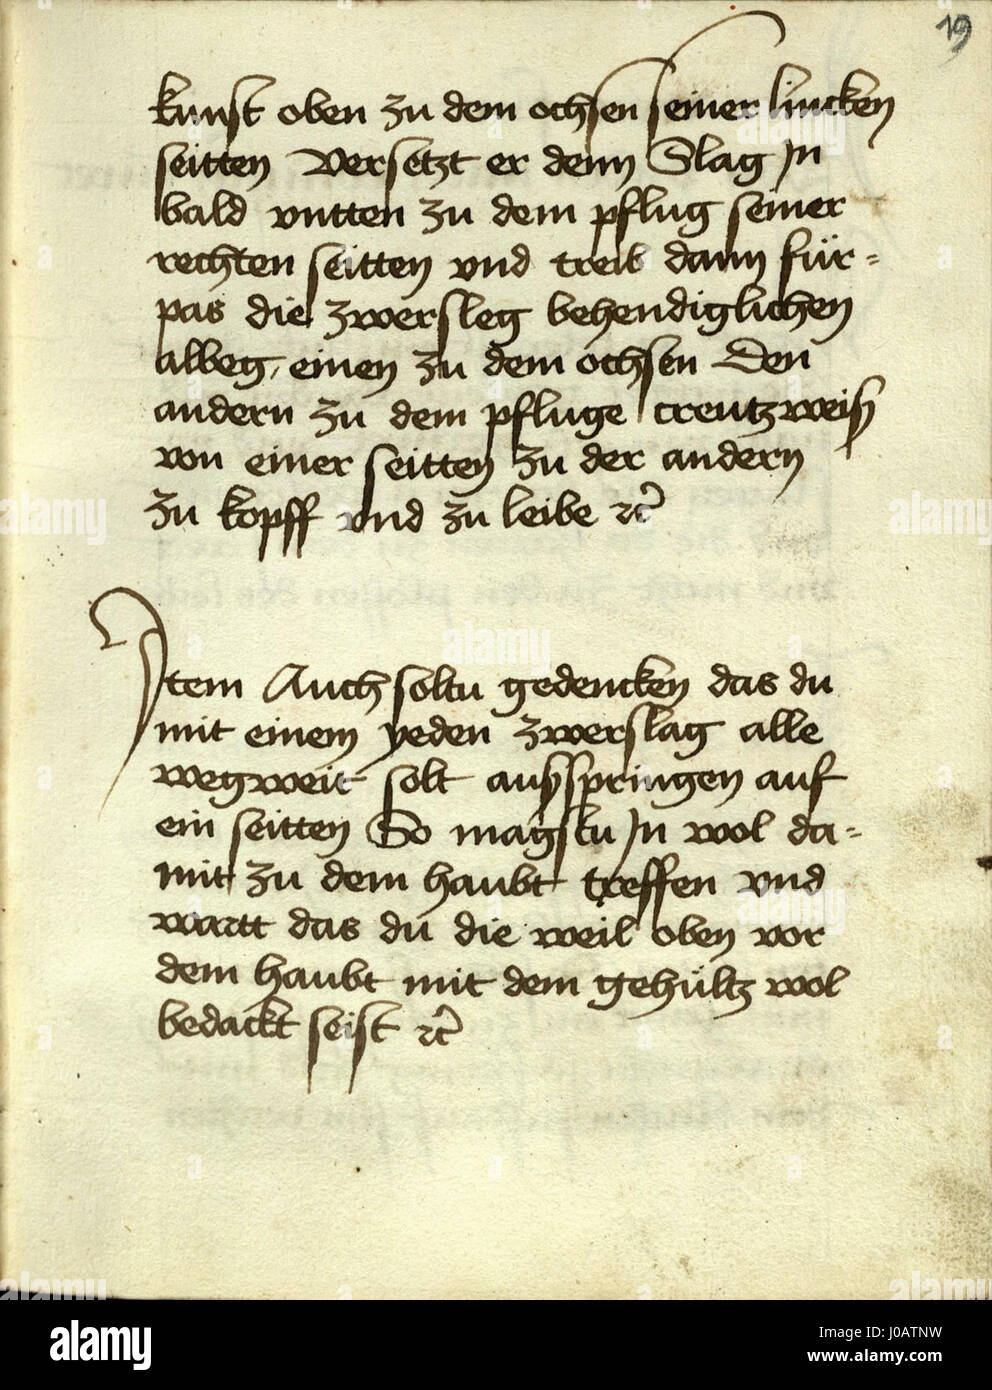 19
kunst oben zu dem ochsen seiner lincken
seitten Versetzt er denn Slag Jn
bald vntten zu dem pflug seiner
rechten seitten vnd treib dann für-
pas die zwersleg behendiglichen
albeg einen zu dem ochsen Den
andern zu dem pfluge creutzweiß
von einer seitten zu der andern
zu kopff vnd zu leibe ꝛc̃
Jtem Auch soltu gedencken das du
mit einem yeden zwerslag alle
wegweit solt außspringen auf
ein seitten So magstu Jn wol da-
mit zu dem haubt treffen vnd
wartt das du die weil oben vor
dem haubt mit dem gehültz wol
bedackt seist ꝛc̃
alamy
Image ID: J0ATNW
www.alamy.com